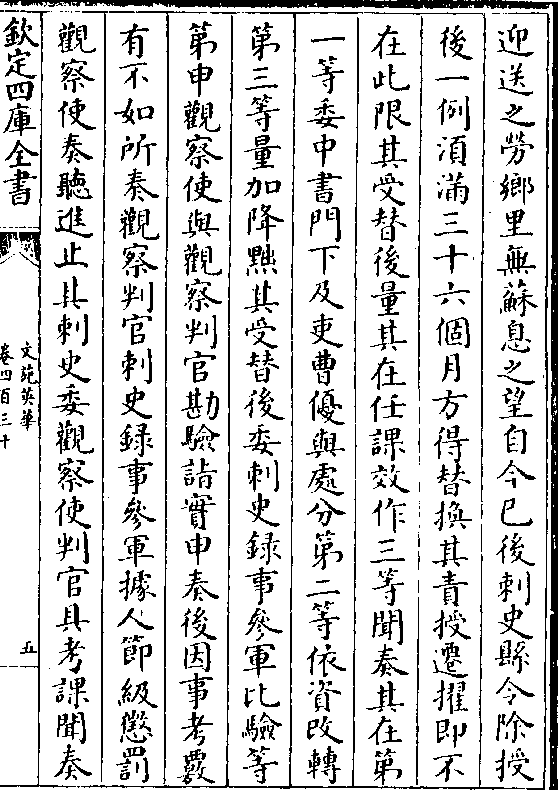 迎送之勞鄉里無蘇息之望自今已後刺史縣令除授
後一例湏滿三十六個月方得替換其責授遷擢即不
在此限其受替後量其在任課效作三等聞奏其在第
一等委中書門下及吏曹優與處分第二等依資改轉
第三等量加降黜其受替後委刺史録事叅軍比驗等
第申觀察使與觀察判官勘驗詣實申奏後因事考覈
有不如所奏觀察判官刺史録事叅軍據人節級懲罰
觀察使奏聽進止其刺史委觀察使判官具考課聞奏
欽定四庫全書
文苑英華
卷四百三十
五